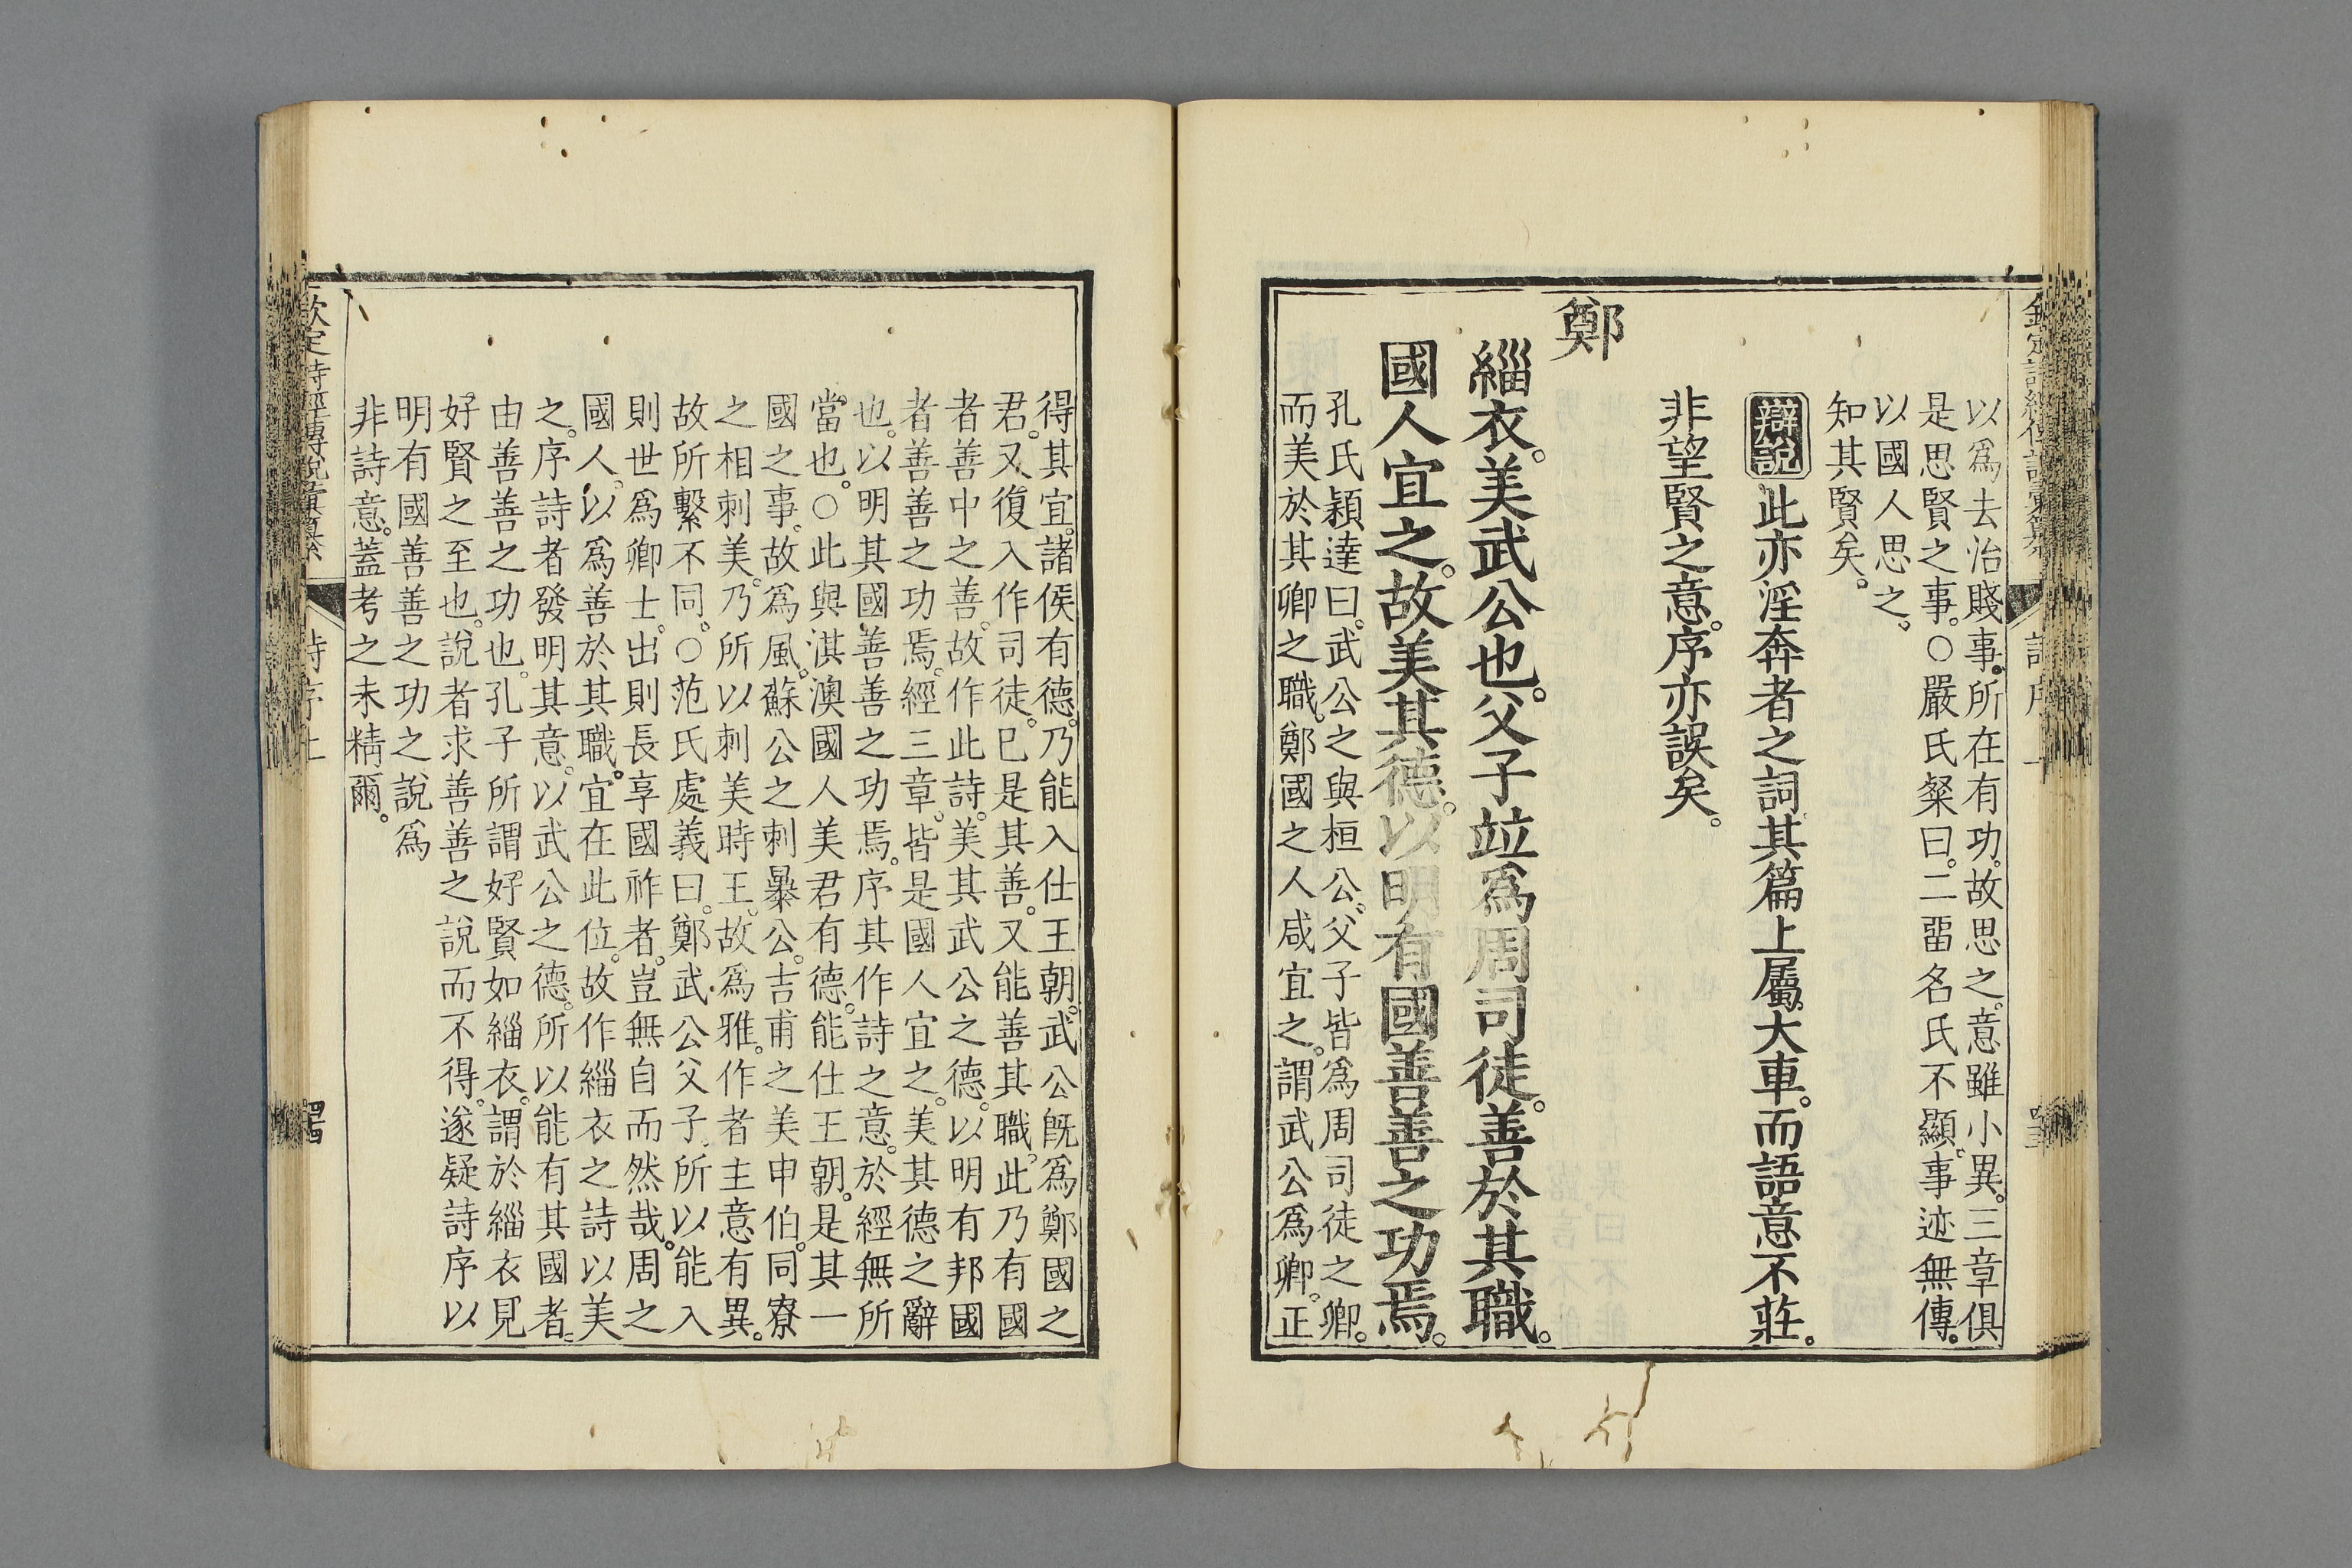 以爲去治賤事。所在有功。故思之。意雖小異。三章俱
是思賢之事。○嚴氏粲曰。二畱名氏不顯。事迹無傳。
以國人思之。
知其賢矣。
辯說此亦淫奔者之詞。其篇上屬大車。而語意不莊。
非望賢之意。序亦誤矣。
鄭
緇衣。美武公也。父子竝爲周司徒。善於其職。
國人宜之。故美其德。以明有國善善之功焉。
孔氏穎達曰。武公之與桓公。父子皆爲周司徒之卿。
而美於其卿之職。鄭國之人咸宜之。謂武公爲卿。正
得其宜。諸侯有德。乃能入仕王朝。武公旣爲鄭國之
君。又復入作司徒。已是其善。又能善其職。此乃有國
者善中之善。故作此詩。美其武公之德。以明有邦國
者善善之功焉。經三章。皆是國人宜之。美其德之辭
也。以明其國善善之功焉。序其作詩之意。於經無所
當也。○此與淇澳國人美君有德。能仕王朝。是其一
國之事。故爲風。蘇公之刺暴公。吉甫之美申伯。同寮
之相刺美。乃所以刺美時王。故爲雅。作者主意有異。
故所繫不同。○范氏處義曰。鄭武公父子。所以能入
則世爲卿士。出則長享國祚者。豈無自而然哉。周之
國人。以爲善於其職。宜在此位。故作緇衣之詩以美
之。序詩者發明其意。以武公之德。所以能有其國者。
由善善之功也。孔子所謂好賢如緇衣。謂於緇衣見
好賢之至也。說者求善善之說而不得。遂疑詩序以
明有國善善之功之說爲
非詩意。蓋考之未精爾。
欽定詩經傳說彙纂
詩序上